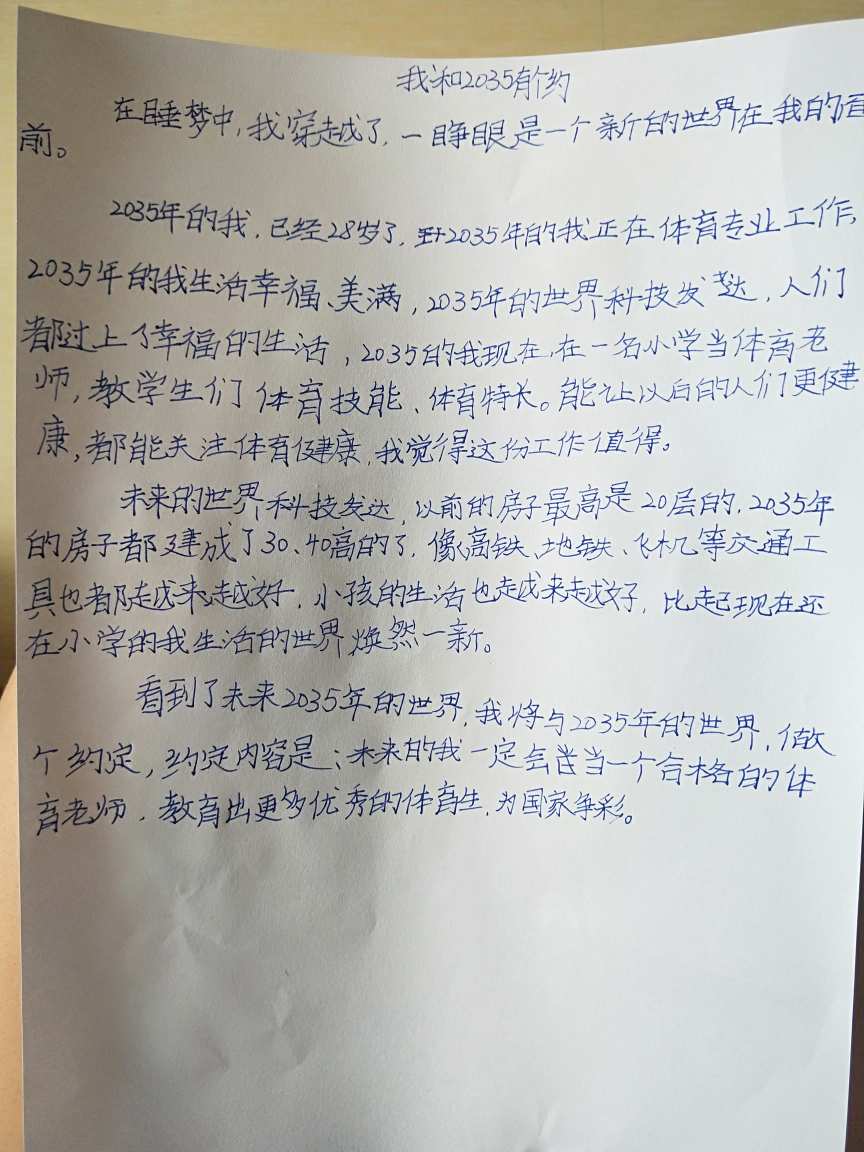 我和2035有个约
在睡梦中，我穿越了，一睁眼是一个新的世界在我的眉
前。
2035年的我，已经28岁了，2035年的我正在体育专业工作，
2035年的我生活幸福、美满，2035年的世界科技发达，人们
都过上了幸福的生活，2035的我现在在一名小学当体育老
师，教学生们体育技能、体育特长。能让以后的人们更健
康，都能关注体育健康，我觉得这份工作值得。
未来的世界科技发达，以前的房子最高是20层的，2035年
的房子都建成了30、40高的了，像高铁、地铁、飞机等交通工
具也都越来越好，小孩的生活也越来越好，比起现在还
在小学的我生活的世界焕然一新。
看到了未来2035年的世界，我将与2035年的世界，做
个约定，约定内容是：未来的我一定会当一个合格的体
育老师，教育出更多优秀的体育生，为国家争彩。